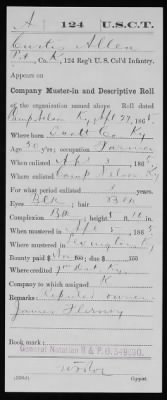 A 124 U.S.C.T.
Curtis Allen
Pvt, Co. K, 124 Reg't U. S. Col'd Infantry.
Appears on
Company Muster-in and Descriptive Roll
of the organization named above. Roll dated
Camp Nelson Ky, Sept 27, 1865.
Where born Scott Co. Ky
Age 30 y'rs; occupation Farmer
When enlisted Apr 5, 1865.
Where enlisted Camp Nelson Ky
For what period enlisted years.
Eyes Blk; hair Blk
Complexion Blk; height ft. in.
When mustered in Apr 5, 1865.
Where mustered in Lexington Ky
Bounty paid $ 100; due $ 100
Where credited Ky
Company to which assigned K
Remarks: Reputed owner
James
Book mark:
General Notation R & P O. 549030.
Copyist.